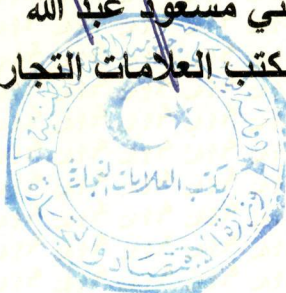 مسعود عبد الله
مكتب العلامات التجار
مكتب العلامات التجارية
وزارة الاقتصاد والتجارة